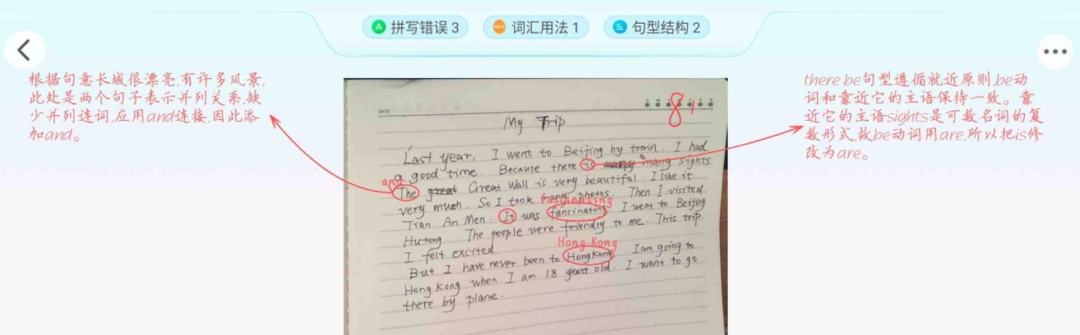 拼写错误 3 词汇用法 1 句型结构 2
根据句意长城很漂亮,有许多风景,
此处是两个句子表示并列关系,缺
少并列连词,应用and连接,因此添
加and。
there be句型遵循就近原则,be动
词和靠近它的主语保持一致。靠
近它的主语sights是可数名词的复
数形式,故be动词用are,所以把is修
改为are。
84
My Trip
Last year, I went to Beijing by train. I had
a good time. Because there is many sights
and
The Great Wall is very beautiful. I like it
very much. So I took many photos. Then I visited
fascinating
Tian An Men. It was fancinating I went to Beijing
Hutong. The people were friendly to me. This trip
I felt excited.
Hong Kong
But I have never been to HongKong I am going to
Hong Kong when I am 18 years old. I want to go
there by plane.